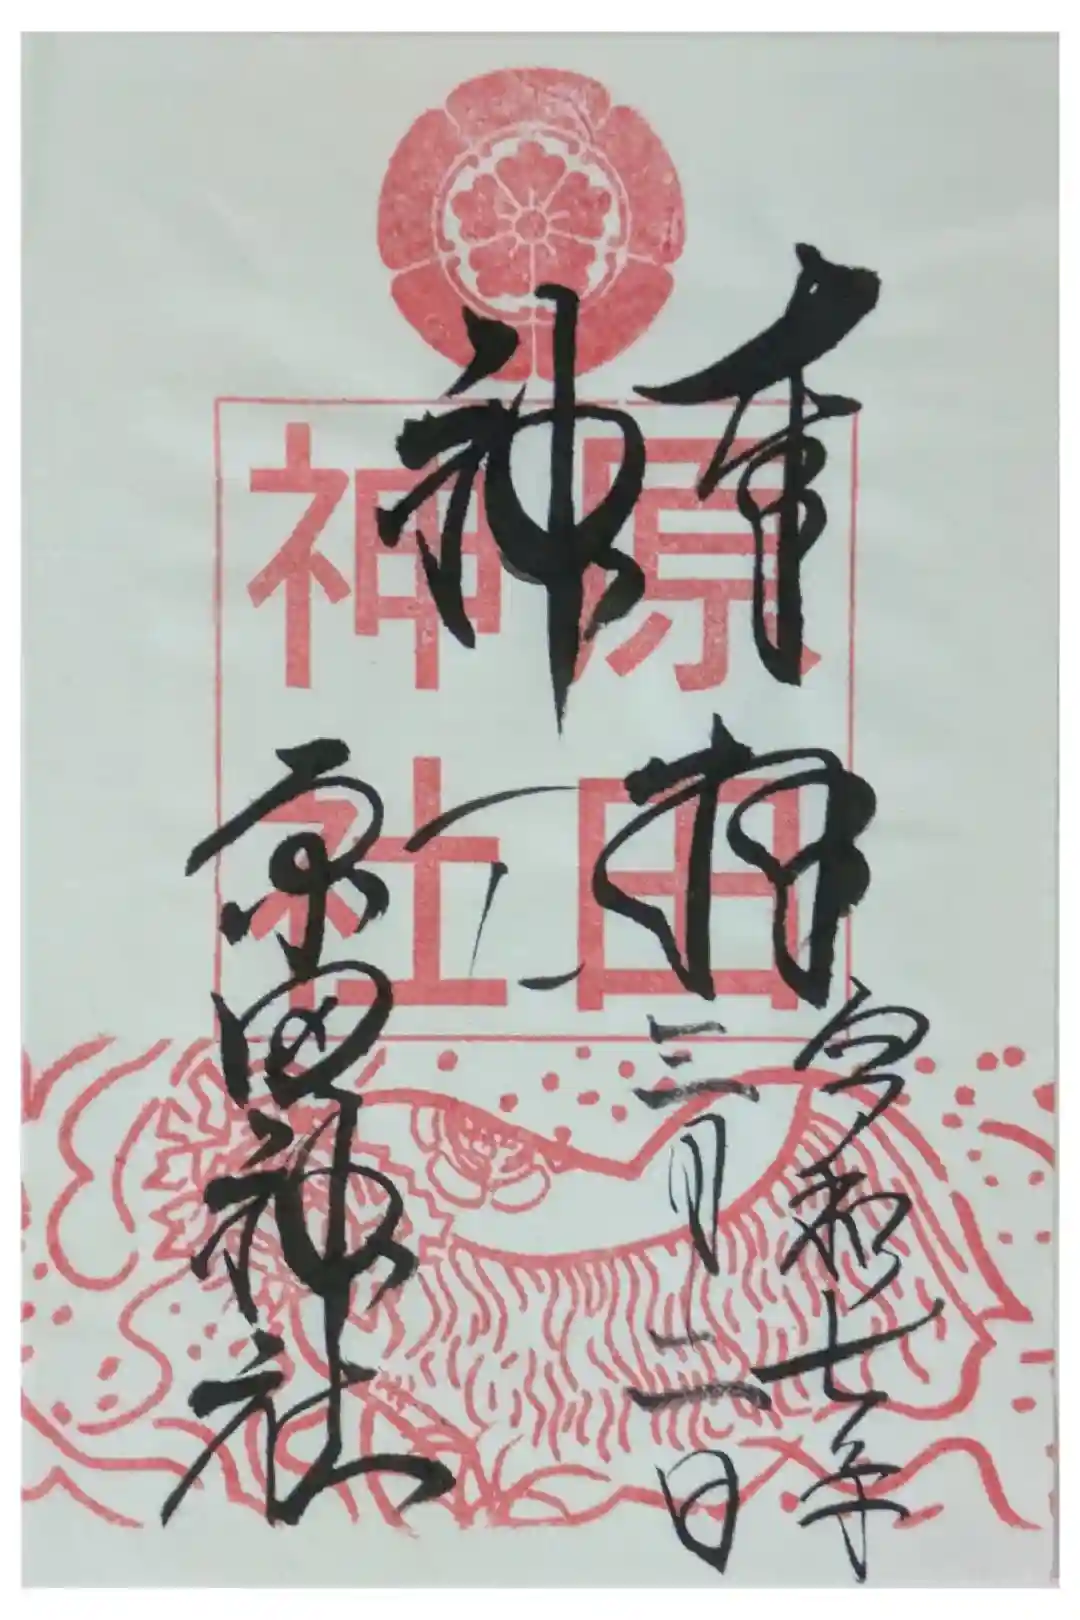 奉拝
令和七年
三月二日
神
原田神社
原田
神社